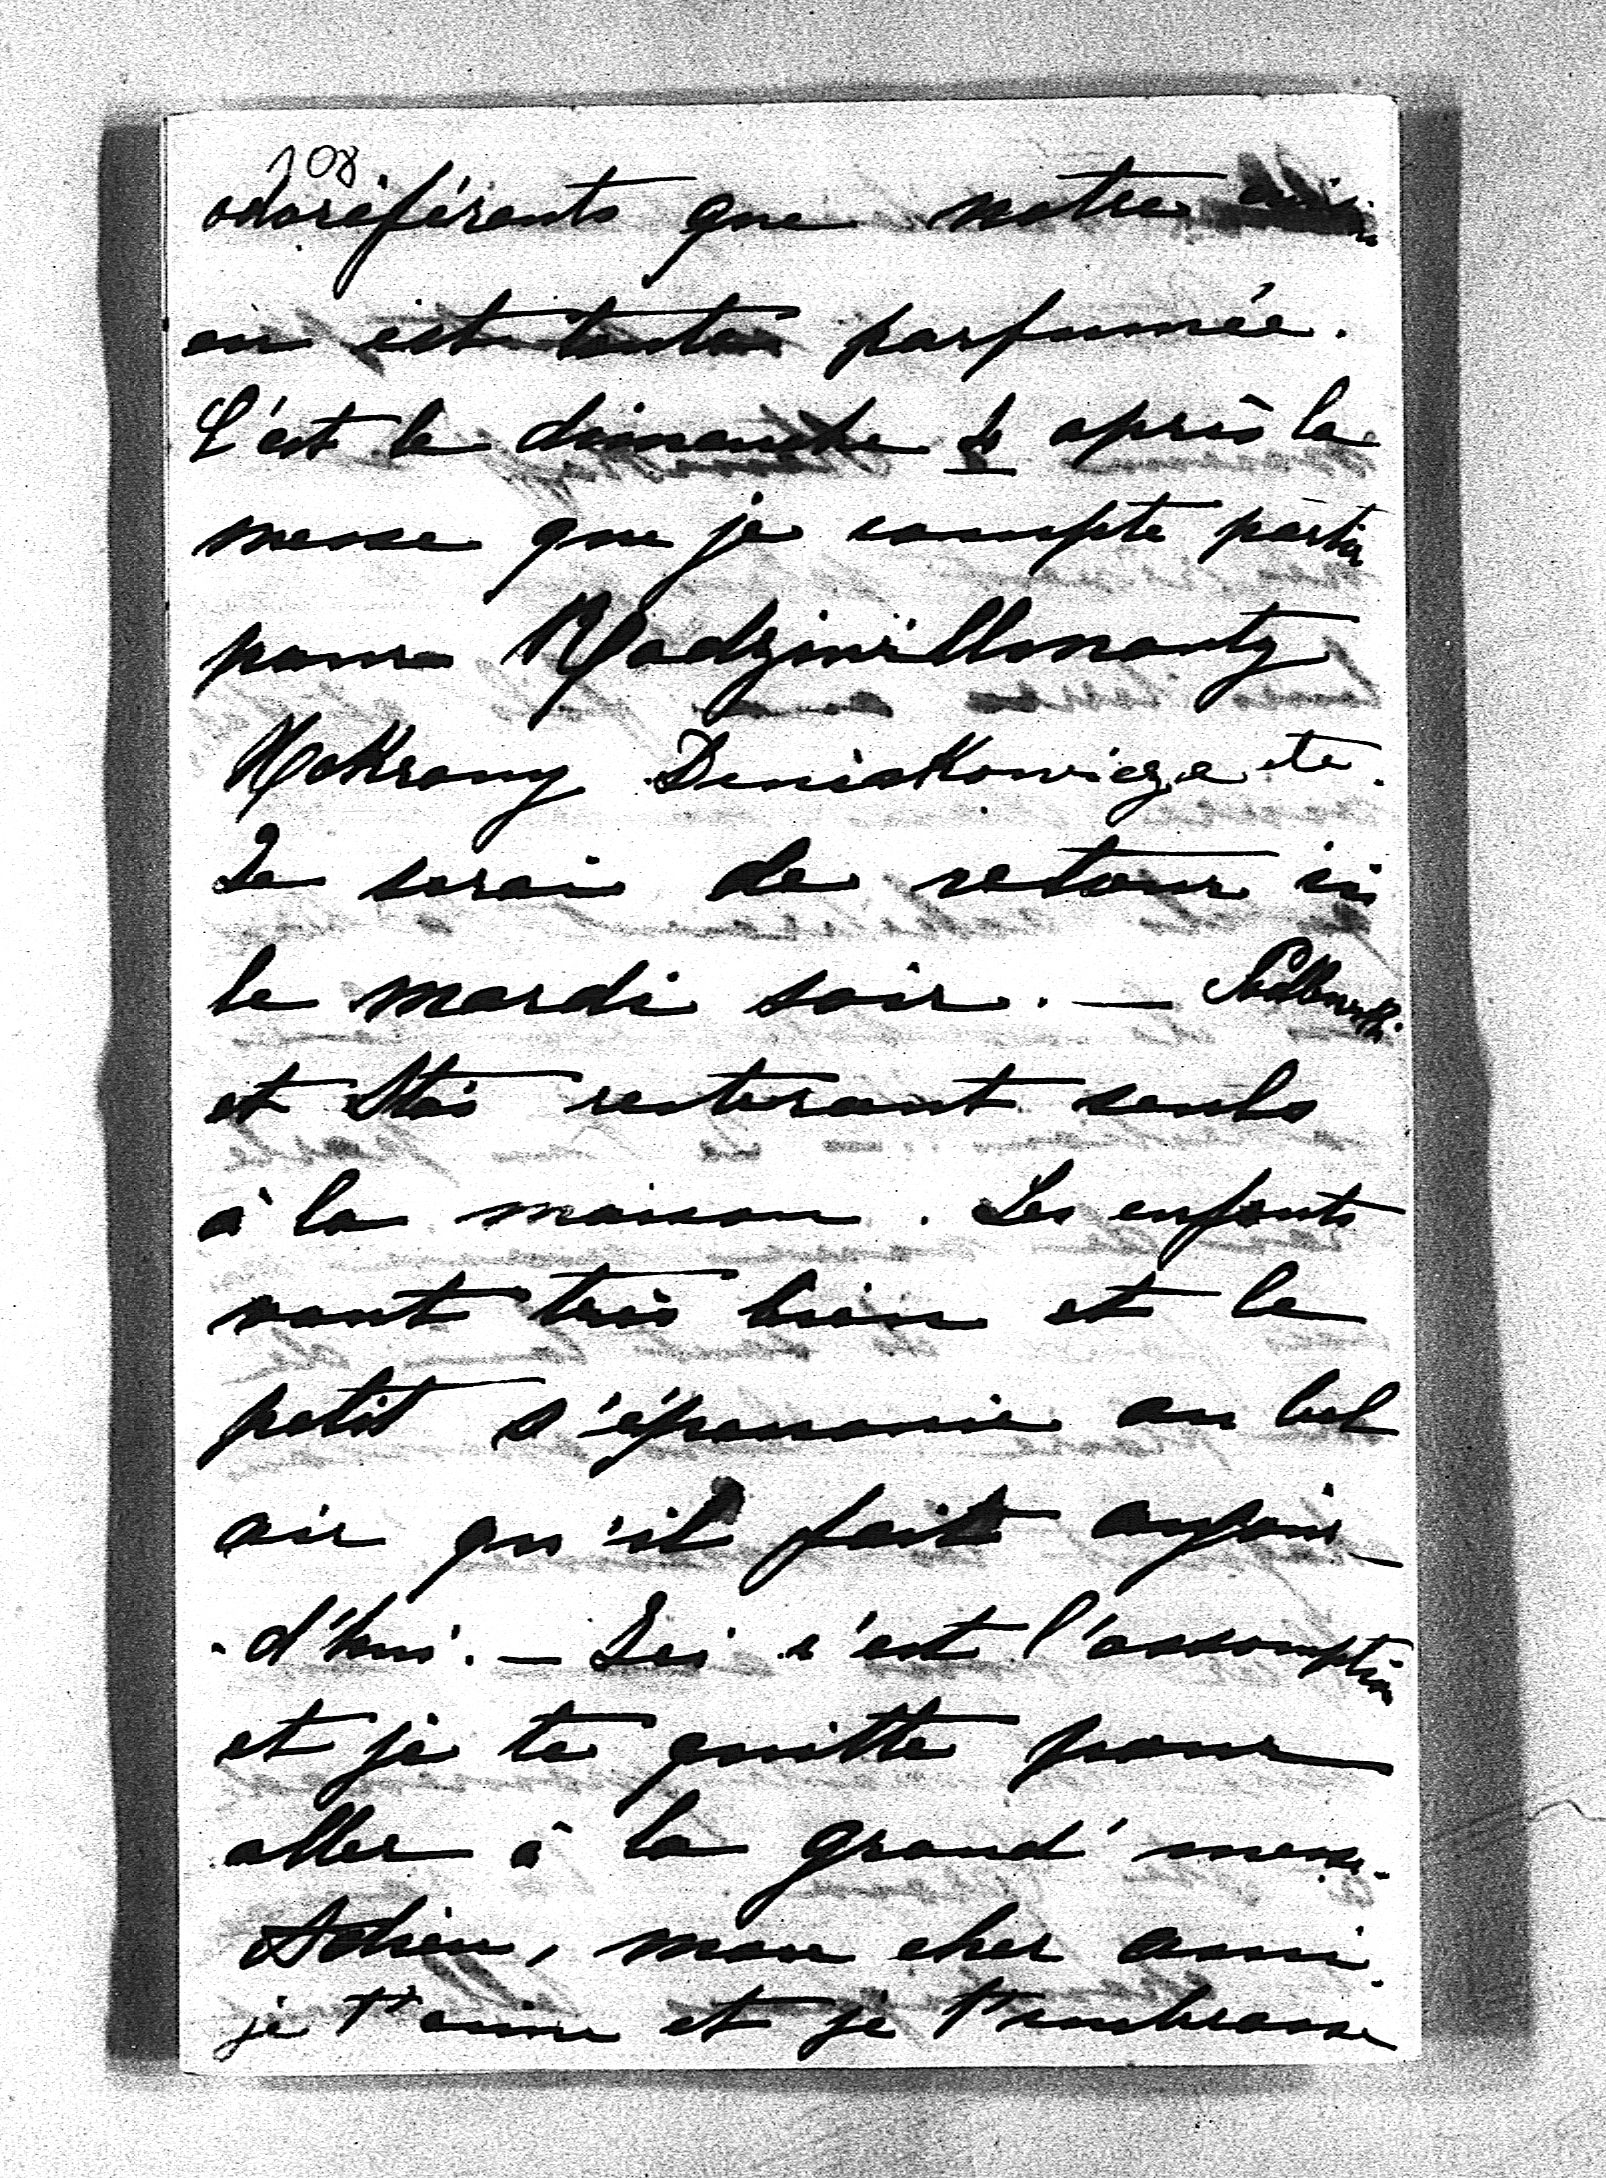 108
odoriférants que notre
en est toute parfumée.
C'est le dimanche 4 après la
messe que je compte partir
pour Radziwillmonty
Mokrany Deniskowicze etc.
Je serai de retour ici
le mardi soir. —
et Staś resteront seuls
à la maison. Les enfants
vont très bien et le
petit s'épanouie au bel
air qu'il fait aujour-
-d'hui. — Ici c'est l'assomption
et je te quitte pour
aller à la grand' messe.
Adieu, mon cher ami.
je t'aime et je t'embrasse